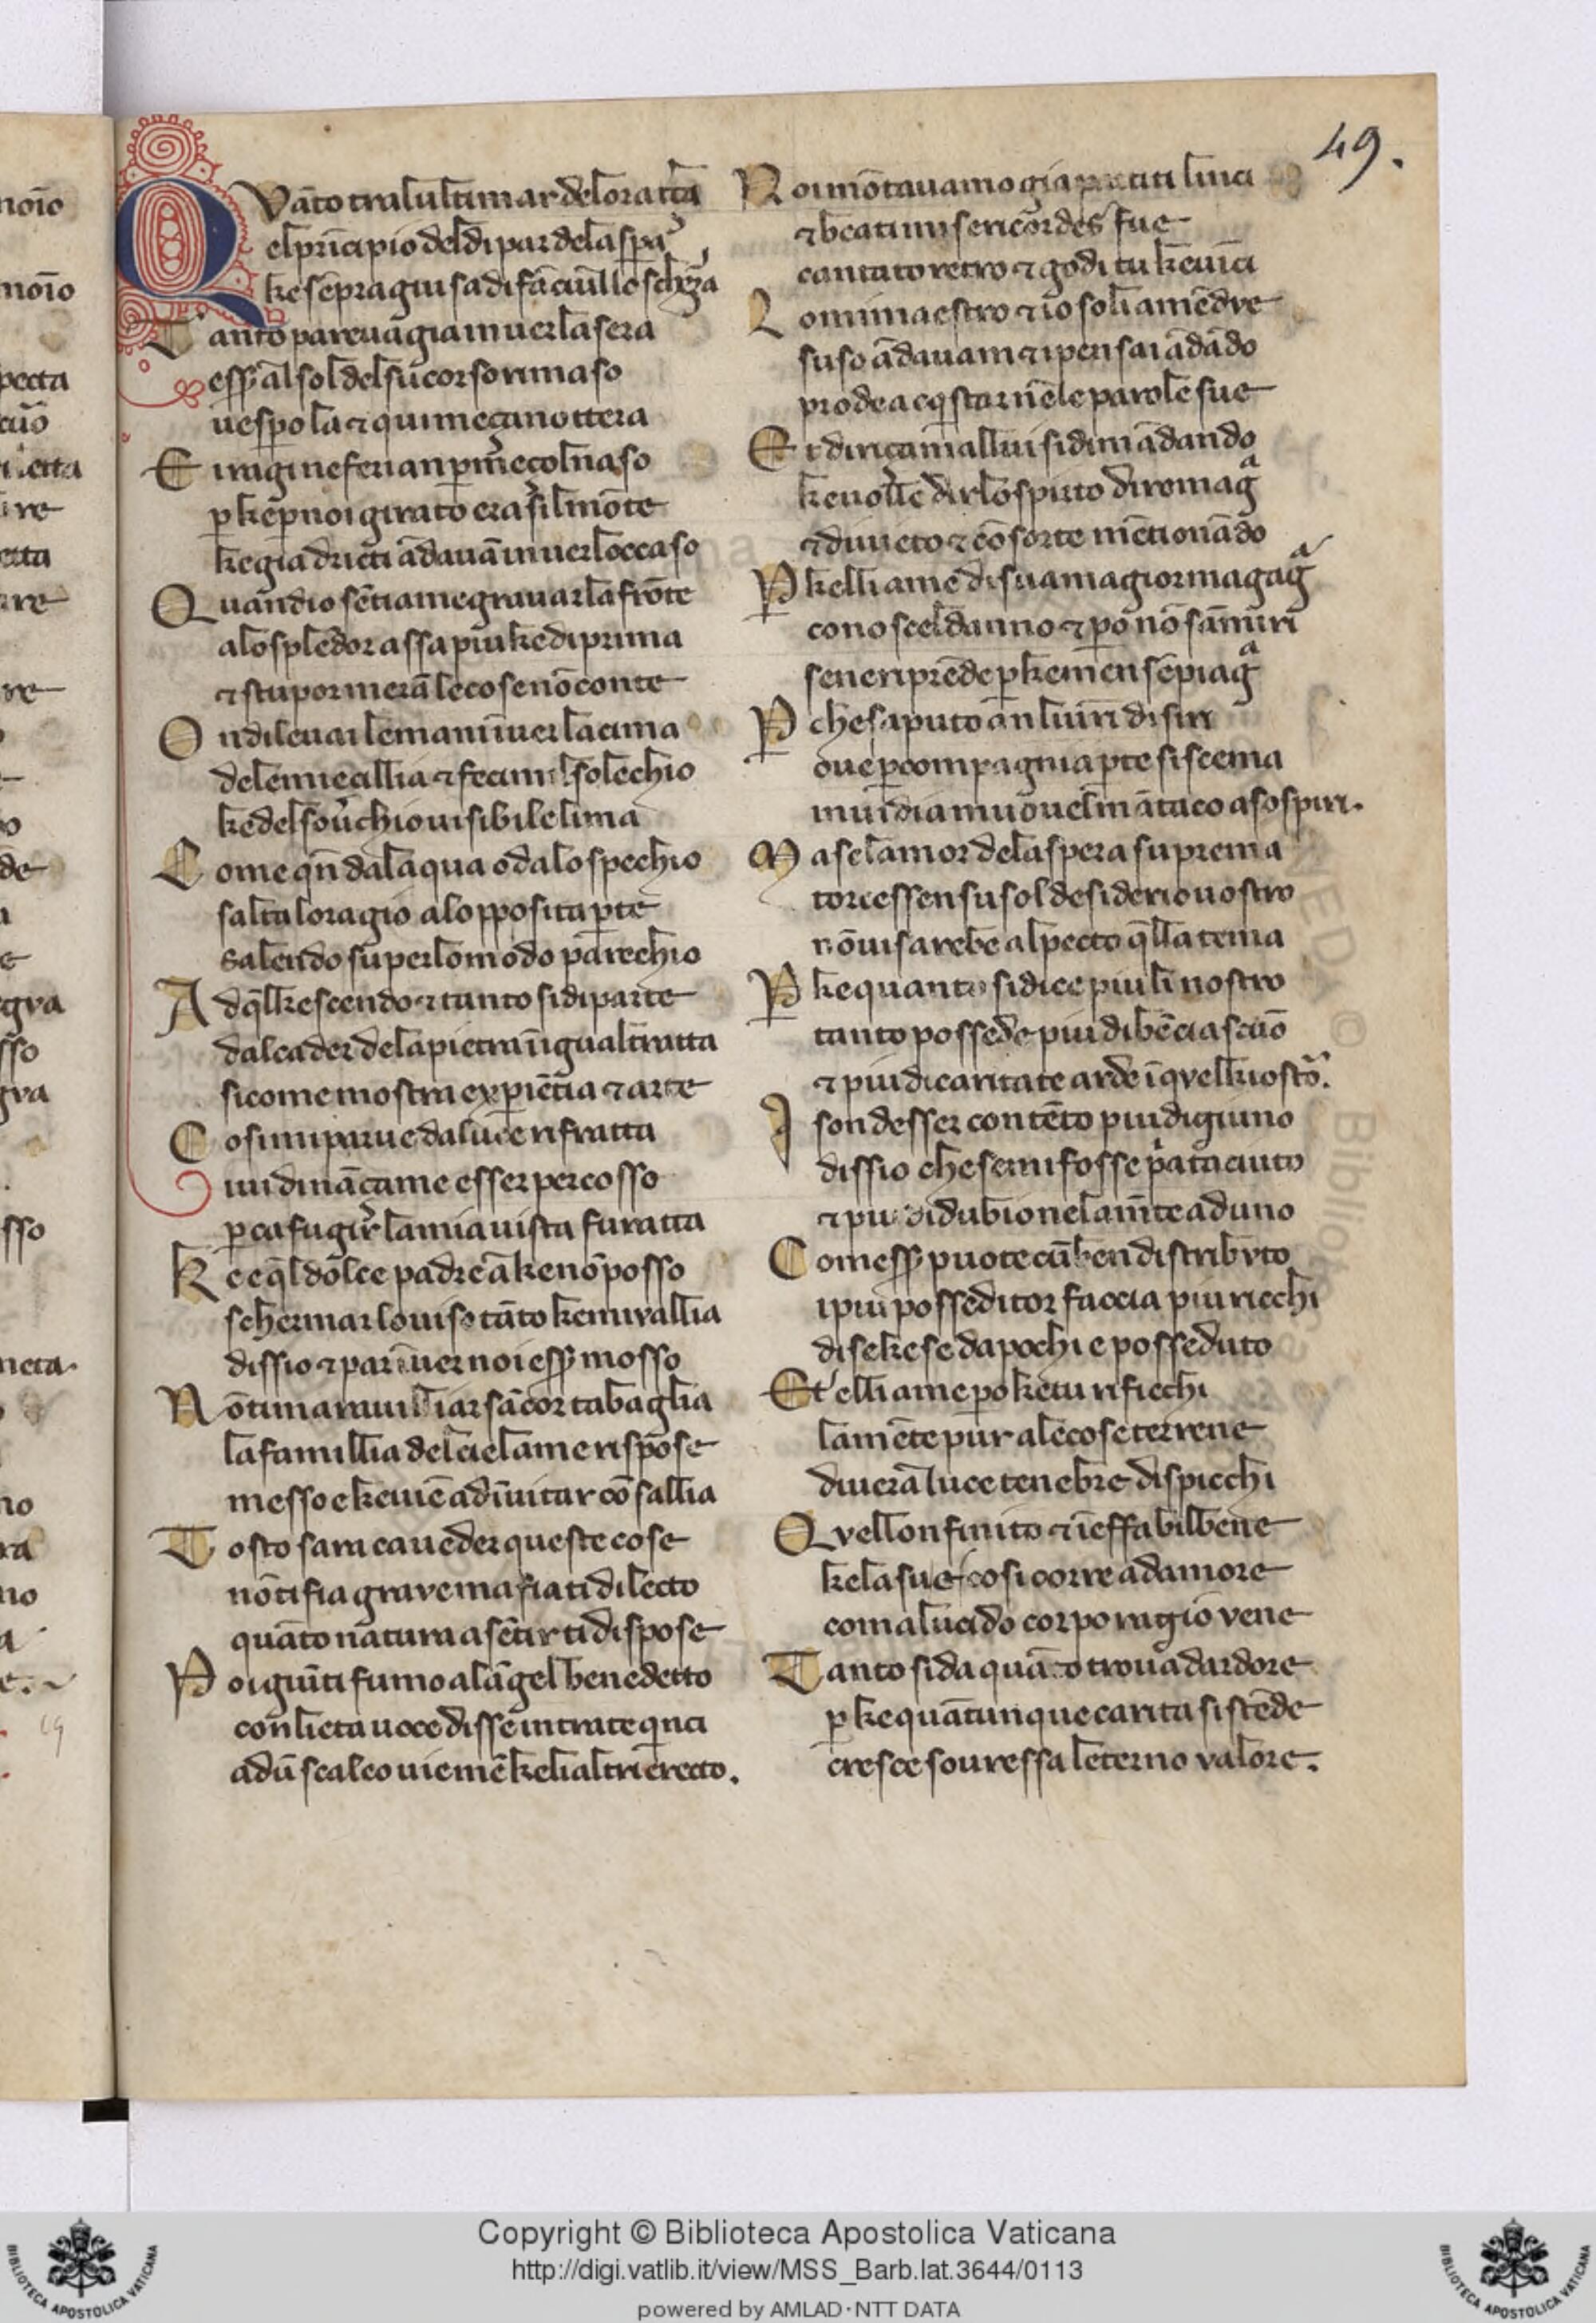 49.
Quãto tra lultimar de lora tã
el prĩcipio del dipar dela spã
ke sẽpra guisa di fãciullo scherza
Tanto pareva gia inuer la sera
esser al sol del su corso rimaso
uespola ⁊ qui meçanottera
E iragi ne ferian p meçolnaso
p ke p noi girato era sil mõte
ke gia dricti ãdauã inuer loccaso
Quandio sẽti a me gravar la frõte
alo splẽdor assa piu ke di prima
⁊ stupor merã le cose nõ conte
Ondi leuai le mani ĩuer la cima
dele mie cillia ⁊ fecimi l solechio
ke del souerchio uisibile lima
Come qñ dalaqua o dalo spechio
salta lo ragio alopposita pte
salendo super lo modo parechio
Ad ql ke scende ⁊ tanto si diparte
dal cader dela pietra ĩ igual tratta
si come mostra expiẽtia ⁊ arte
Cosi mi parue da luce rifratta
iui dinãça me esser percosso
p ca fugir la mia uista fu ratta
Ke e ql dolce padre a ke nõ posso
schermar lo uiso tãto ke mi vallia
dissio ⁊ par ĩuer noi esser mosso
Nõ ti marauilliar sãcor tabaglia
la famillia del ciel a me rispose
messo e ke uiẽ ad ĩuitar com sallia
Tosto sara ca ueder queste cose
nõ ti fia grave ma fia ti dilecto
quãto natura a sẽtir ti dispose
Poi giũti fumo a lãgel benedetto
con lieta uoce disse intrate qnci
ad ũ scaleo uie mẽ ke li altri erecto.
Noi mõtauamo gia partiti linci
⁊ beati misericordes fue
cantato retro ⁊ godi tu ke uĩci
Lo mi maestro ⁊ io soli amẽdve
suso ãdauam ⁊ i pensai ãdãdo
prode acqstar nẽ le parole sue
Et driçami a llui si dimãdando
ke uolle dir lo spirto di romagª
⁊ diuieto ⁊ cõsorte mẽtionãdo
P kelli a me di sua magior magagª
conosce l danno ⁊ po nõ sãmiri
se ne riprẽde p ke mẽ sẽ piagª
P che sapũto ãn lui ri disiri
oue p compagnia pte si scema
inuidia muoue l mãtaco a sospiri.
Ma se lamor dela spera suprema
torcessen su sol desiderio uostro
nõ ui sarebe al pecto qlla tema
P ke quanto si dice piu li nostro
tanto possede piu di bẽ ciascũo
⁊ piu di caritate arde ĩ qvel kiostõ.
I son desser contẽto piu digiuno
dissio che se mi fosse pria taciuto
⁊ piu di dubio nela mẽte aduno
Come esser puote cũ ben distribvto
i piu posseditor faccia piu riechi
di se ke se da pochi e posseduto
Et elli a me po ke tu rifiechi
la mẽte pur ale cose terrene
di uera luce tenebre dispicchi
Qvello nfinito ⁊ ĩeffabil bene
ke la su e cosi corre ad amore
com a lucido corpo ragio vene
Tanto si da quãto trova dardore
p ke quãtunque carita si stẽde
cresce souressa leterno valore.
Copyright © Biblioteca Apostolica Vaticana
http://digi.vatlib.it/view/MSS_Barb.lat.3644/0113
powered by AMLAD·NTT DATA
BIBLIOTECA APOSTOLICA VATICANA
BIBLIOTECA APOSTOLICA VATICANA